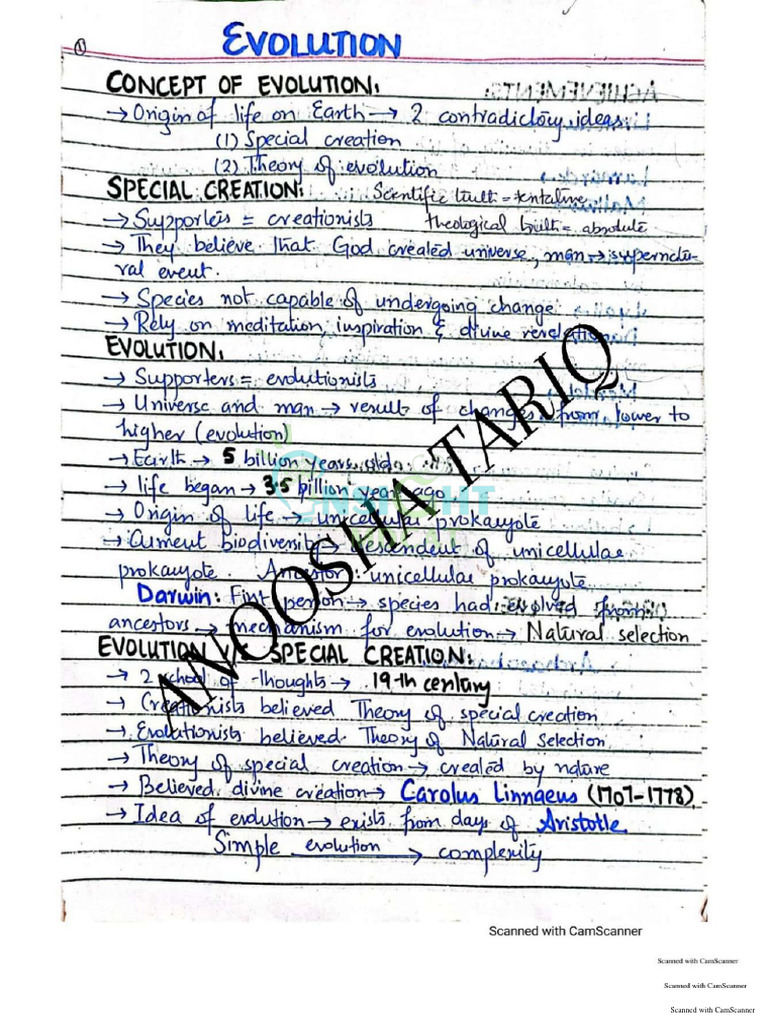 ①
EVOLUTION
CONCEPT OF EVOLUTION:
→ Origin of life on Earth → 2 contradictory ideas:
(1) Special creation
(2) Theory of evolution
SPECIAL CREATION: Scientific truth = tentative
→ Supporters = creationists theological truth = absolute
→ They believe that God created universe, man → supernatu-
ral event.
→ Species not capable of undergoing change
→ Rely on meditation, inspiration & divine revelation
EVOLUTION:
→ Supporters = evolutionists
→ Universe and man → result of changes from lower to
higher (evolution)
→ Earth → 5 billion years old
→ life began → 3.5 billion years ago
→ Origin of life → unicellular prokaryote
→ Current biodiversity → descendent of unicellular
prokaryote Ancestor unicellular prokaryote
Darwin: First person → species had evolved from
ancestors → mechanism for evolution → Natural selection
EVOLUTION V/S SPECIAL CREATION:
→ 2 school of thoughts → 19th century
→ Creationists believed Theory of special creation
→ Evolutionists believed Theory of Natural selection
→ Theory of special creation → created by nature
→ Believed divine creation → Carolus Linnaeus (1707-1778)
→ Idea of evolution → exists from days of Aristotle
Simple evolution → complexity
ANOOSHA TARIQ
Scanned with CamScanner
Scanned with CamScanner
Scanned with CamScanner
Scanned with CamScanner